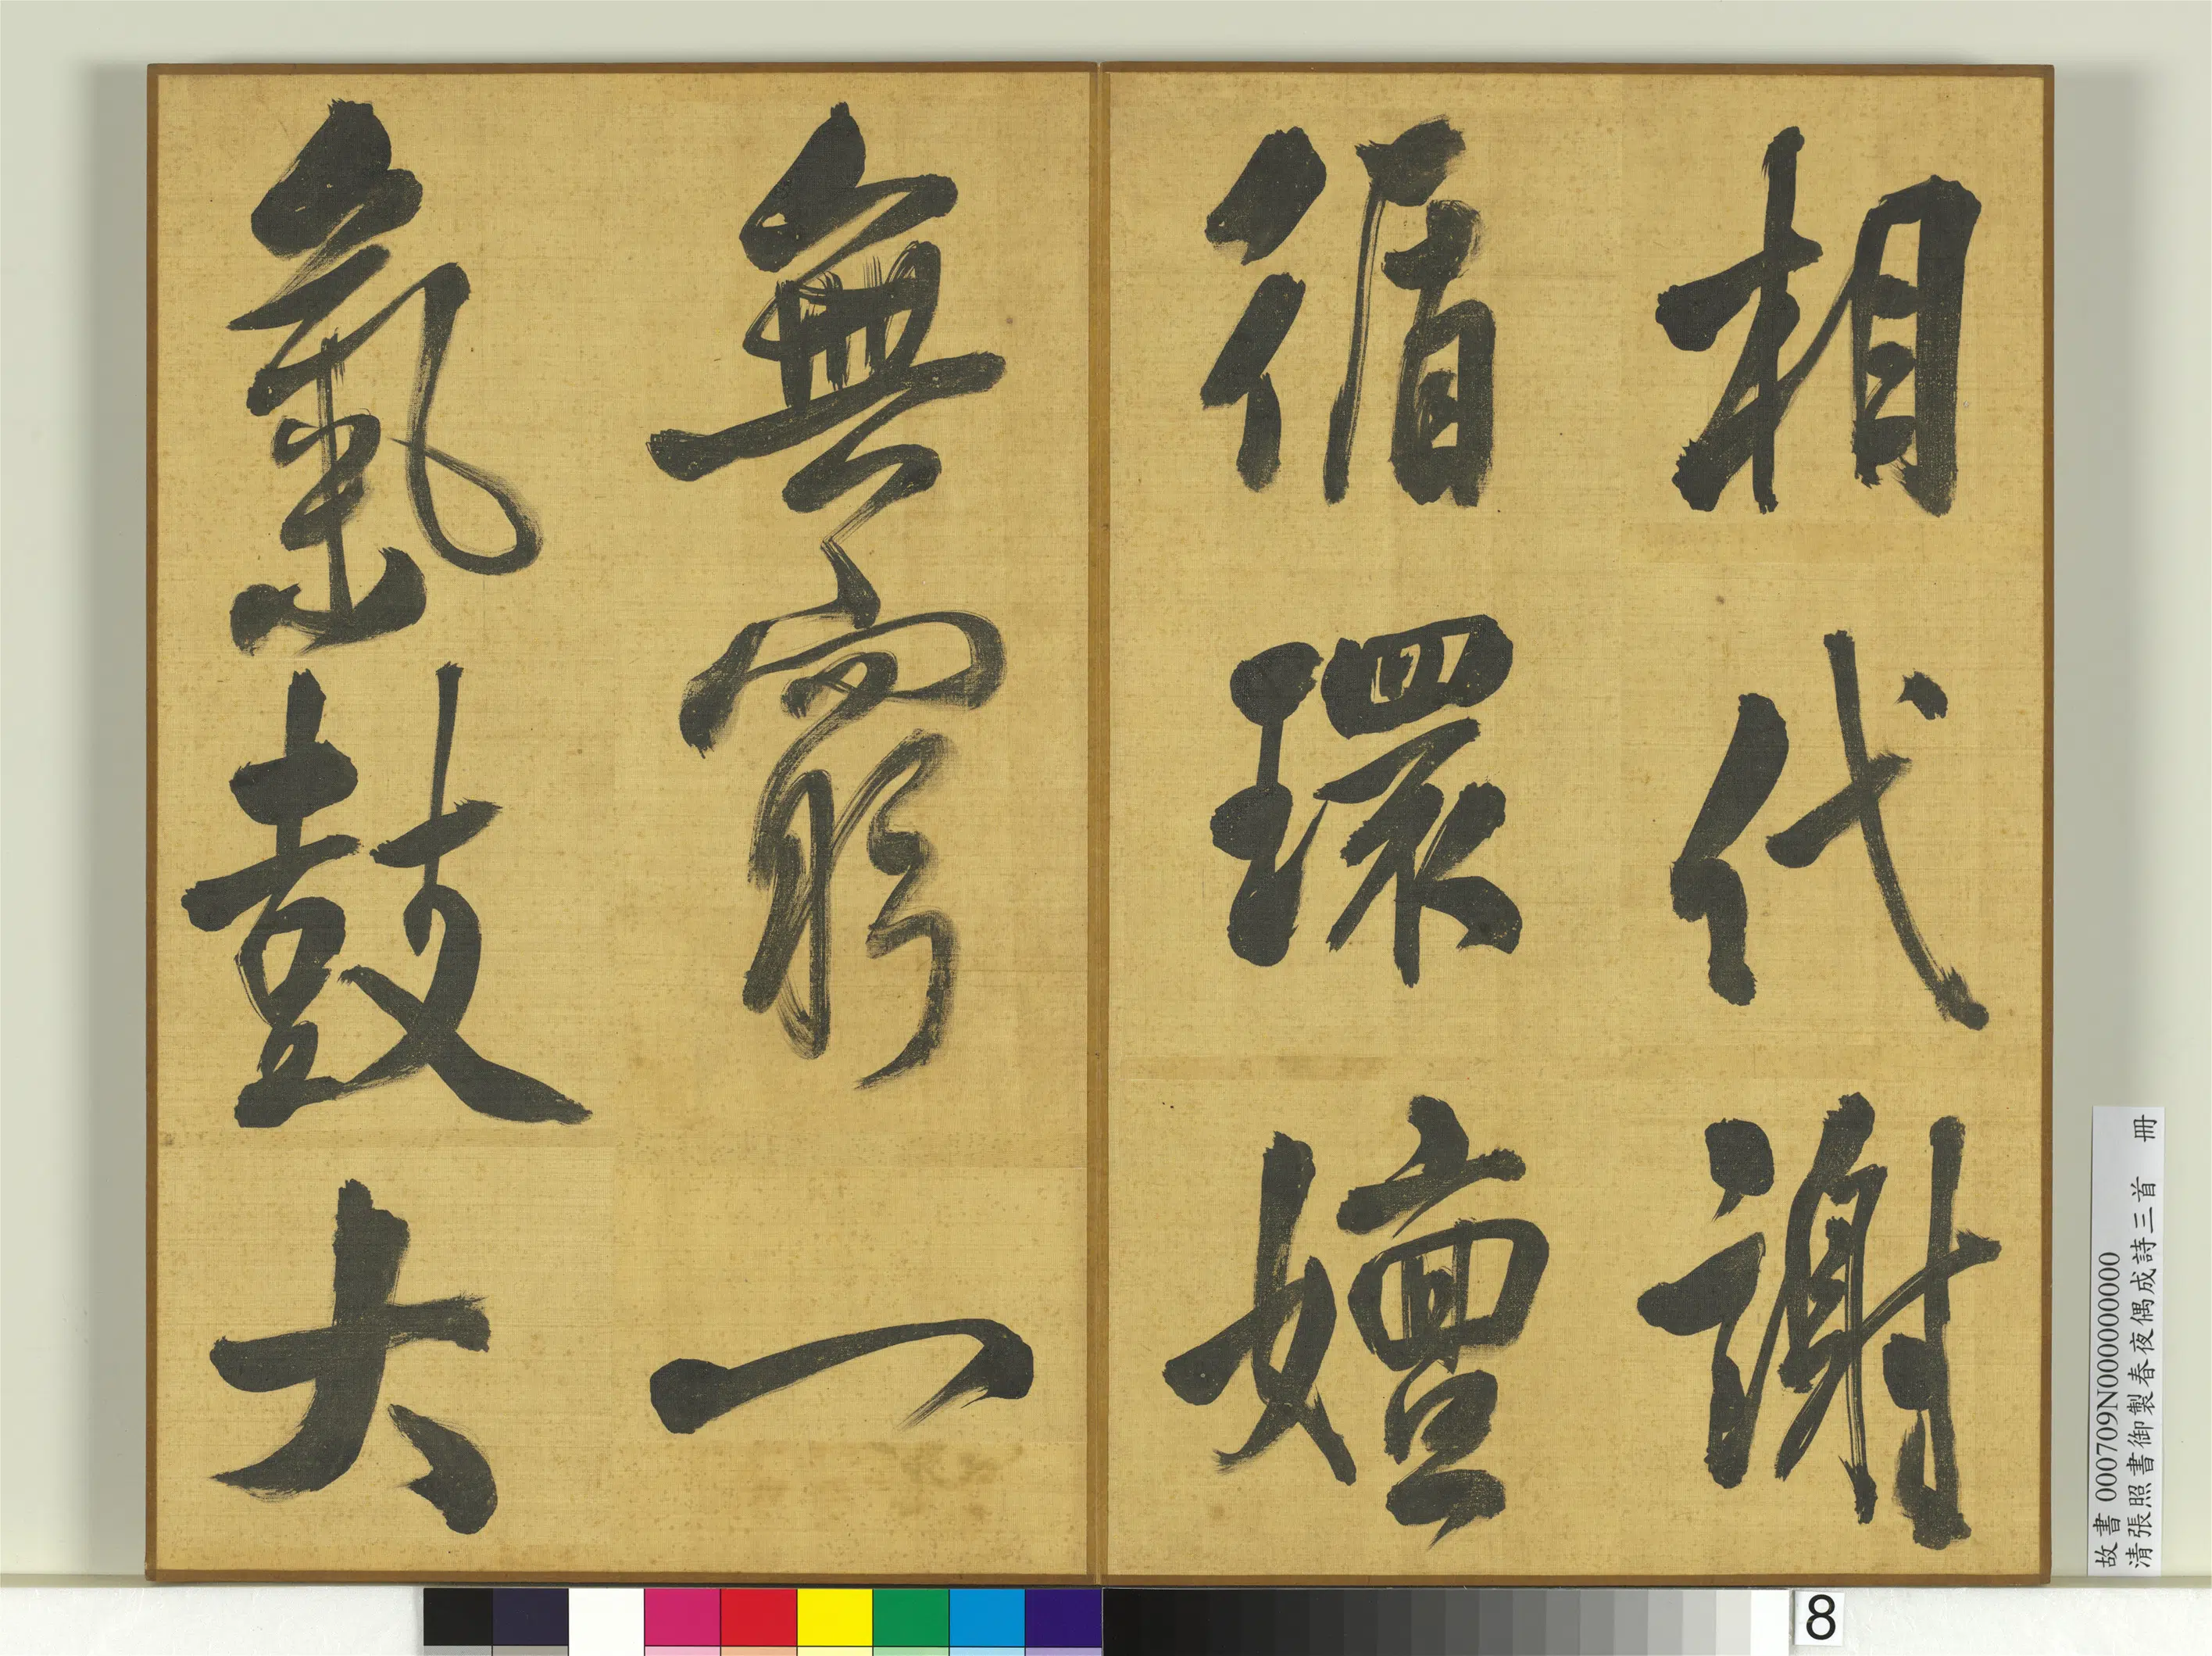 相代謝
循環嬗
無窮一
氣鼓大
故書 000709N000000000
清張照書御製春夜偶成詩三首 冊
8